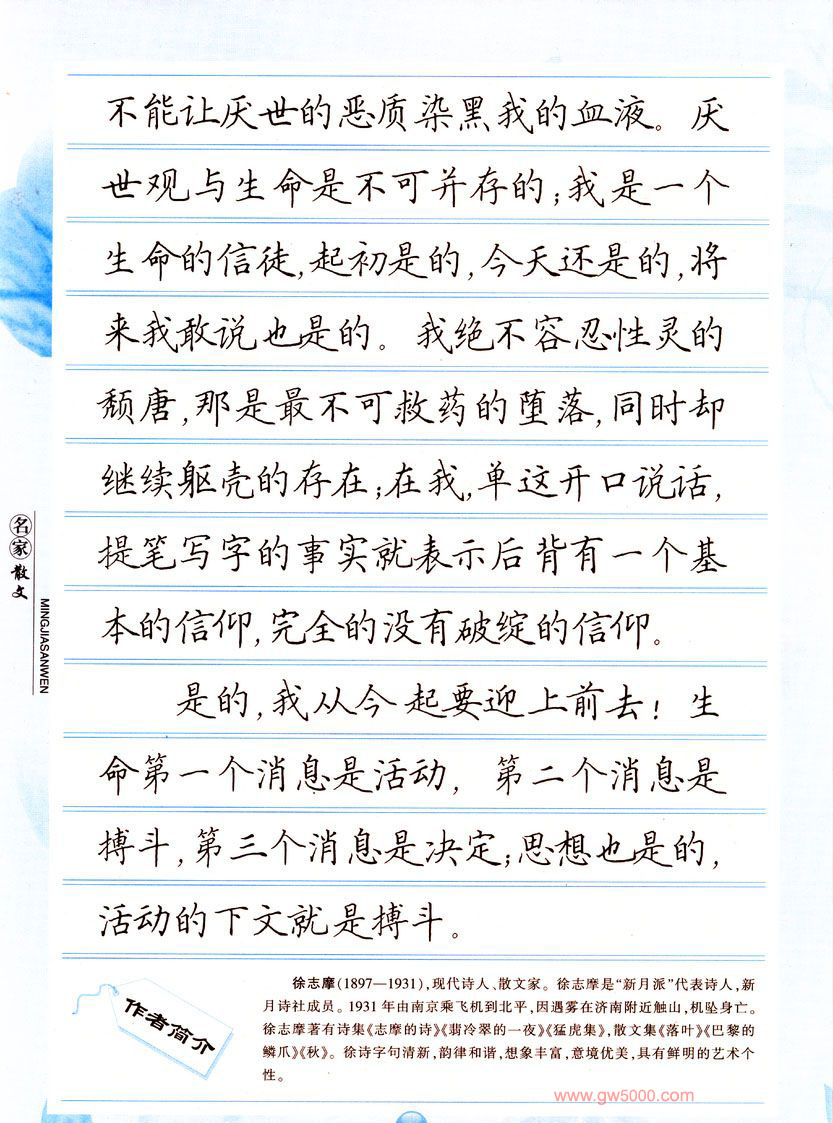 不能让厌世的恶质染黑我的血液。厌
世观与生命是不可并存的；我是一个
生命的信徒，起初是的，今天还是的，将
来我敢说也是的。我绝不容忍性灵的
颓唐，那是最不可救药的堕落，同时却
继续躯壳的存在；在我，单这开口说话，
提笔写字的事实就表示后背有一个基
本的信仰，完全的没有破绽的信仰。
是的，我从今起要迎上前去！生
命第一个消息是活动，第二个消息是
搏斗，第三个消息是决定；思想也是的，
活动的下文就是搏斗。
名家散文
MINGJIASANWEN
作者简介
徐志摩(1897—1931)，现代诗人、散文家。徐志摩是“新月派”代表诗人，新
月诗社成员。1931年由南京乘飞机到北平，因遇雾在济南附近触山，机坠身亡。
徐志摩著有诗集《志摩的诗》《翡冷翠的一夜》《猛虎集》，散文集《落叶》《巴黎的
鳞爪》《秋》。徐诗字句清新，韵律和谐，想象丰富，意境优美，具有鲜明的艺术个
性。
www.gw5000.com